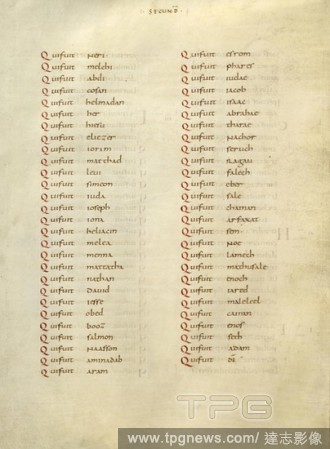 SECUND̄
Quifuit Neri
Quifuit melchi
Quifuit abdi
Quifuit cosan
Quifuit helmadan
Quifuit her
Quifuit hiesu
Quifuit eliezer
Quifuit iorim
Quifuit matthad
Quifuit leui
Quifuit simeon
Quifuit iuda
Quifuit ioseph
Quifuit iona
Quifuit heliacim
Quifuit melea
Quifuit menna
Quifuit mattatha
Quifuit nathan
Quifuit dauid
Quifuit iesse
Quifuit obed
Quifuit booz
Quifuit salmon
Quifuit Naasson
Quifuit aminadab
Quifuit aram
Quifuit esrom
Quifuit phares
Quifuit iudae
Quifuit iacob
Quifuit isaac
Quifuit abrahae
Quifuit tharae
Quifuit Nachor
Quifuit seruch
Quifuit Ragau
Quifuit falech
Quifuit eber
Quifuit sale
Quifuit chainan
Quifuit arfaxat
Quifuit sem
Quifuit Noe
Quifuit lamech
Quifuit mathusale
Quifuit enoch
Quifuit iared
Quifuit maleleel
Quifuit cainan
Quifuit enos
Quifuit seth
Quifuit adam
Quifuit dī
TPG
www.tpgnews.com/達志影像